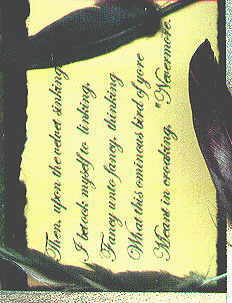 Then, upon the velvet sinking,
I betook myself to linking,
Fancy unto fancy, thinking
What this ominous bird of yore
Meant in croaking, "Nevermore.